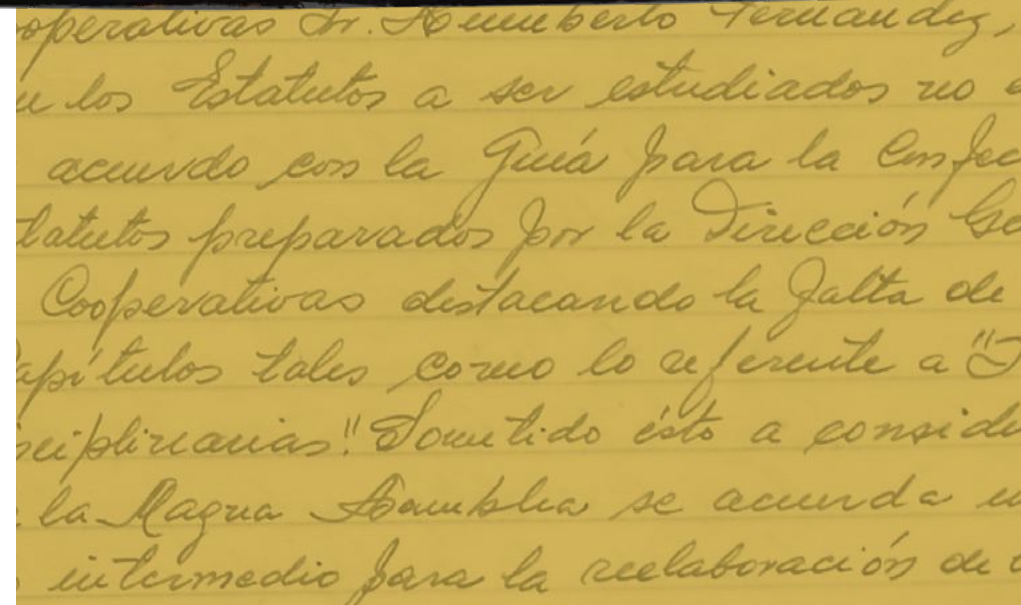 operativas Dr. Humberto Fernandez,
los Estatutos a ser estudiados no
acuerdo con la Guía para la Confec
tatutos preparados por la Dirección Ge
Cooperativas destacando la falta de
apítulos tales como lo referente a "
ciplinarias". Sometido ésto a conside
la Magna Asamblea se acuerda u
intermedio para la reelaboración de